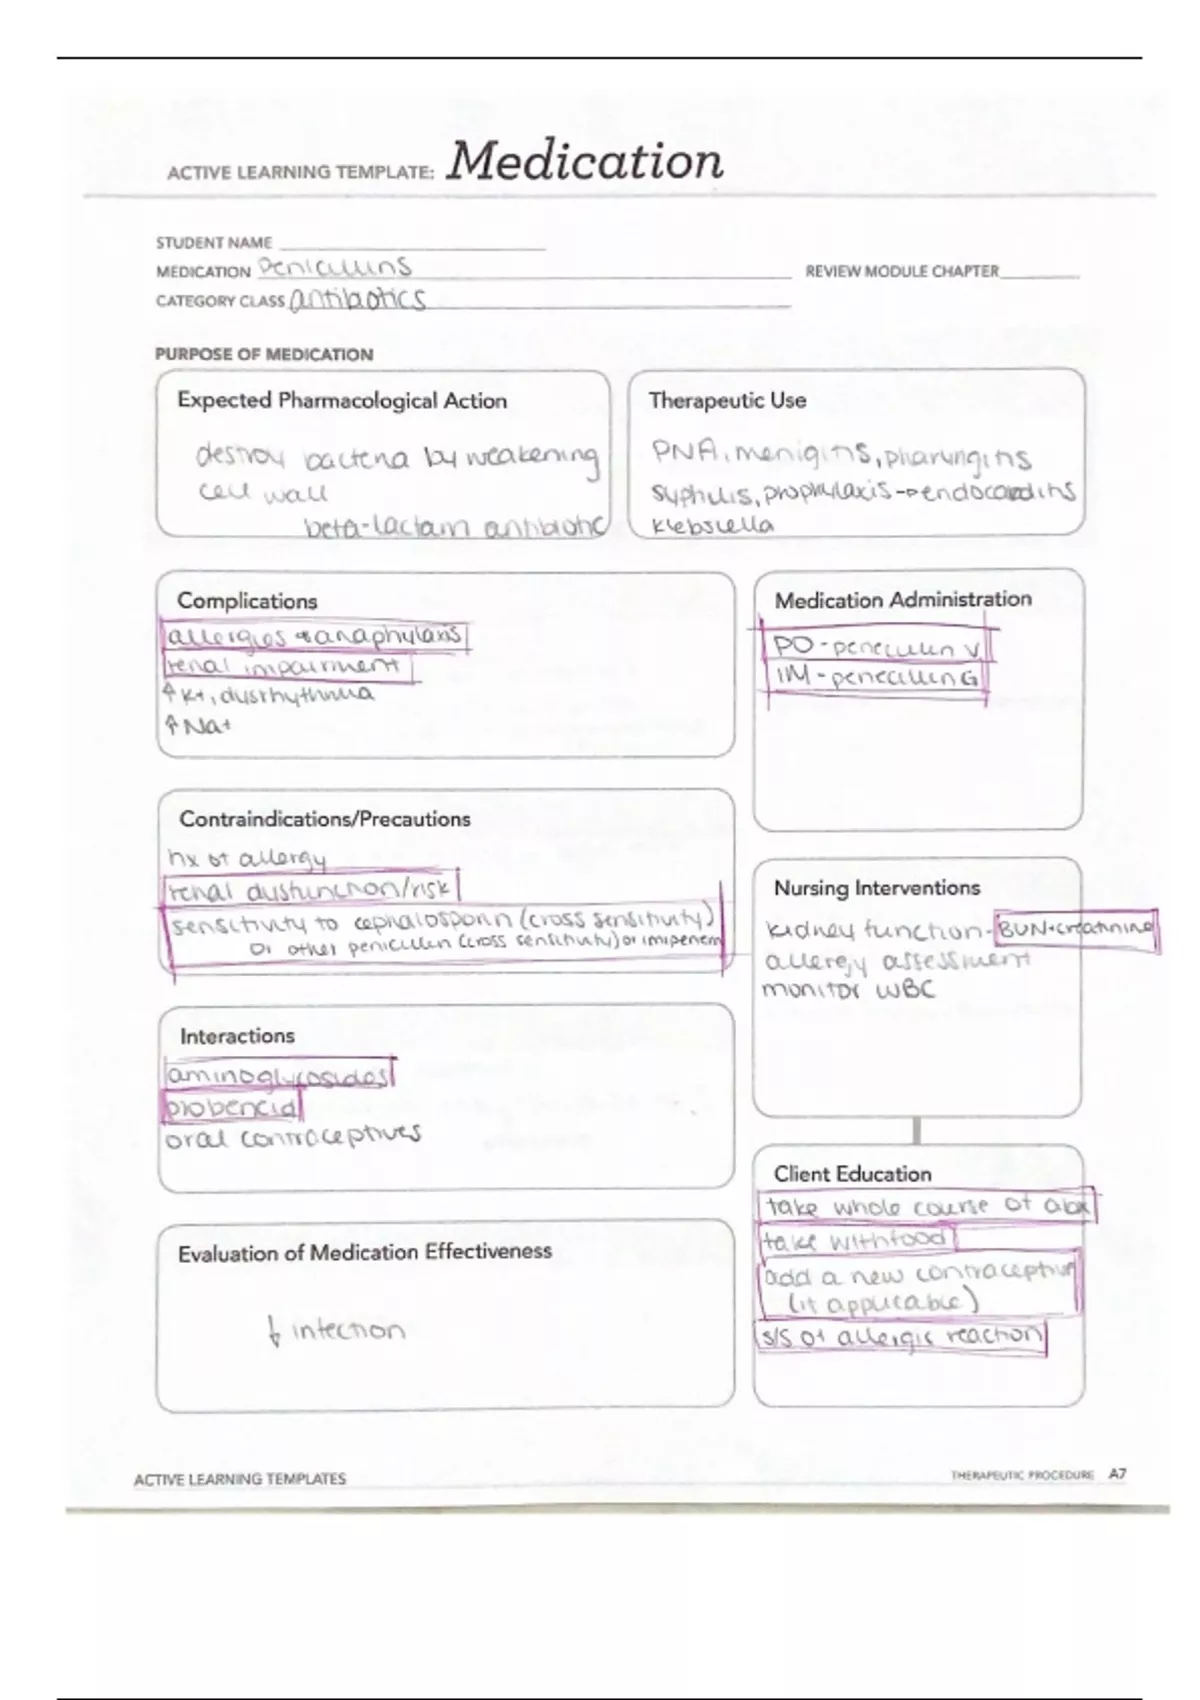 ACTIVE LEARNING TEMPLATE: Medication
STUDENT NAME
MEDICATION Penicillins REVIEW MODULE CHAPTER
CATEGORY CLASS antibiotics
PURPOSE OF MEDICATION
Expected Pharmacological Action
destroy bacteria by weakening
cell wall
beta-lactam antibiotic
Therapeutic Use
PNA, menigitis, pharyngitis
syphilis, prophylaxis→endocarditis
klebsiella
Complications
allergies + anaphylaxis
renal impairment
↑ K+, dysrhythmia
↑ Na+
Medication Administration
PO - penecillin V
IM - penecillin G
Contraindications/Precautions
hx of allergy
renal dysfunction/risk
sensitivity to cephalosporin (cross sensitivity)
or other penicillin (cross sensitivity) or imipenem
Nursing Interventions
kidney function - BUN + creatinine
allergy assessment
monitor WBC
Interactions
aminoglycosides
probencid
oral contraceptives
Client Education
take whole course of abx
take with food
add a new contraceptive
(if applicable)
s/s of allergic reaction
Evaluation of Medication Effectiveness
↓ infection
ACTIVE LEARNING TEMPLATES THERAPEUTIC PROCEDURE A7